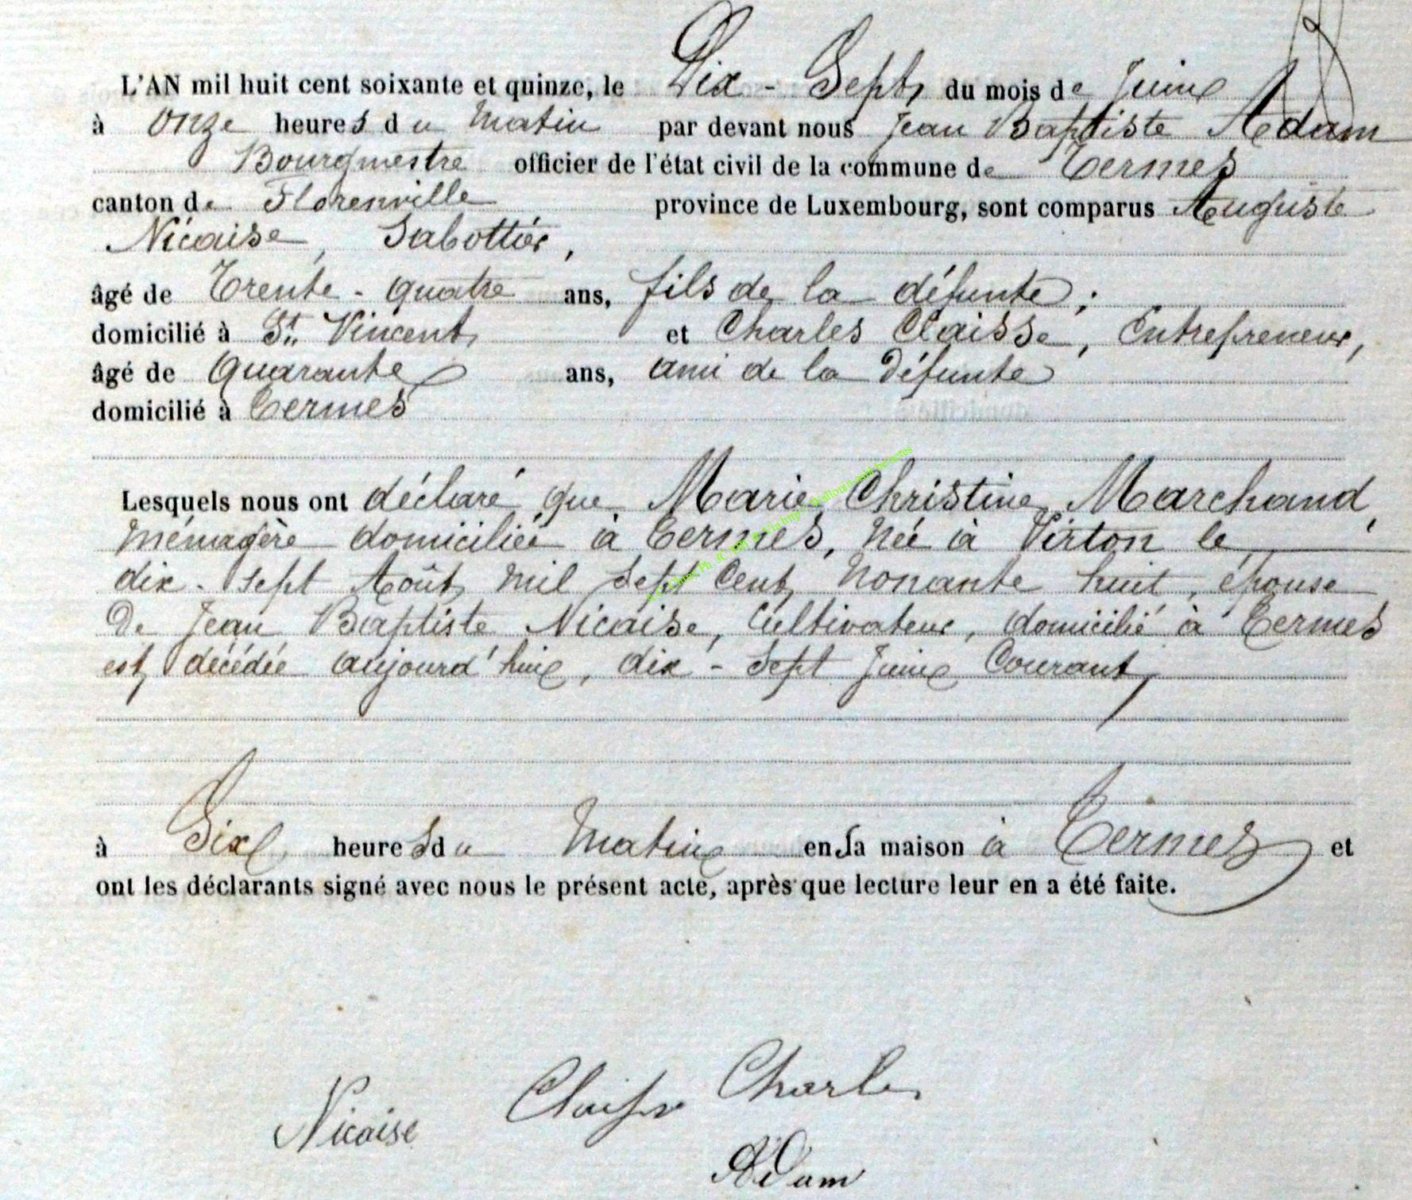 L'AN mil huit cent soixante et quinze, le Dix-Sept, du mois de Juin
à Onze heures du Matin par devant nous Jean Baptiste Adam
Bourgmestre officier de l'état civil de la commune de Termes
canton de Florenville province de Luxembourg, sont comparus Auguste
Nicaise, Sabottier,
âgé de Trente-quatre ans, fils de la défunte ;
domicilié à St. Vincent, et Charles Claisse, Entrepreneur,
âgé de Quarante ans, ami de la Défunte
domicilié à Termes
Lesquels nous ont déclaré que Marie Christine Marchand,
Ménagère domiciliée à Termes, Née à Virton le
dix-sept Août mil sept Cent Nonante huit, épouse
De Jean Baptiste Nicaise, Cultivateur, domicilié à Termes
est décédée aujourd'hui, dix-sept Juin Courant,
à Six heures du Matin en sa maison à Termes et
ont les déclarants signé avec nous le présent acte, après que lecture leur en a été faite.
Nicaise Claisse Charles
Adam